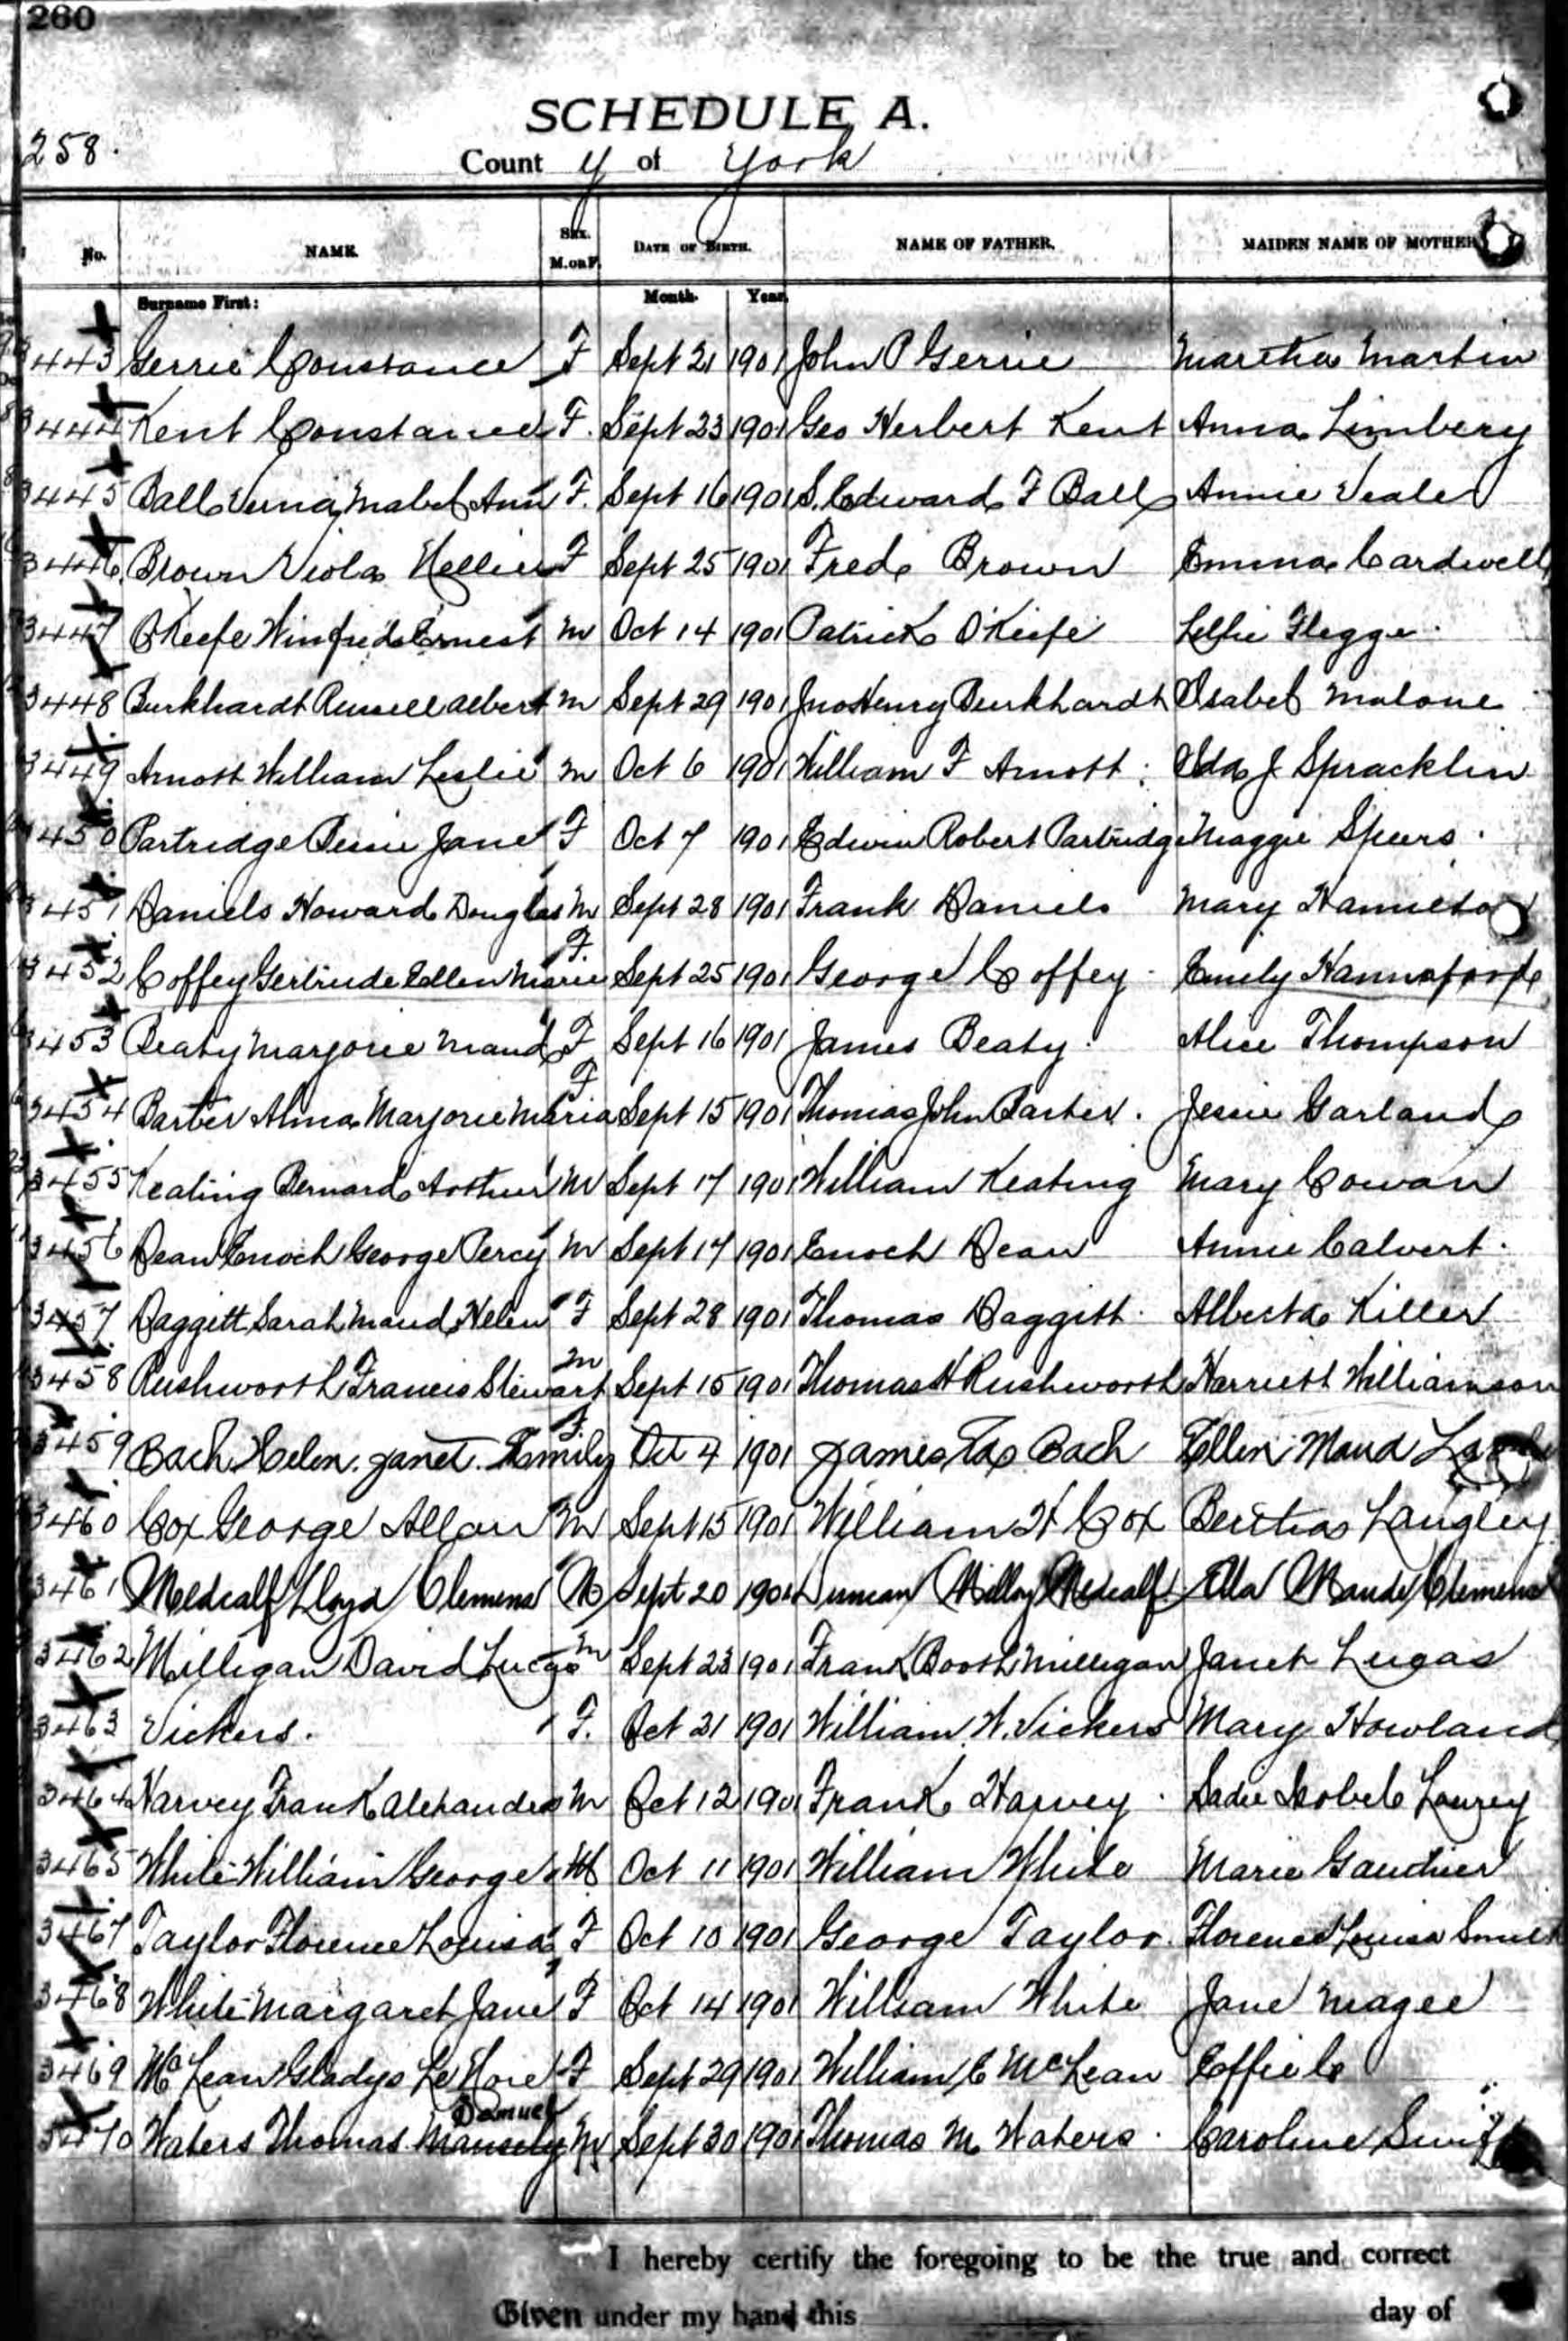 260
SCHEDULE A.
258.
County of York
No. NAME. Sex. M. or F. DATE OF BIRTH. NAME OF FATHER. MAIDEN NAME OF MOTHER
Surname First: Month. Year.
3443 Gerrie Constance F Sept 21 1901 John P Gerrie Martha Martin
3444 Kent Constance F. Sept 23 1901 Geo Herbert Kent Anna Limbery
3445 Ball Verna Mabel Ann F. Sept 16 1901 S. Edward F Ball Annie Veale
3446 Brown Viola Nellie F Sept 25 1901 Fred Brown Emma Cardwell
3447 OKeefe Winfred Ernest m Oct 14 1901 Patrick OKeefe Flegge.
3448 Burkhardt Russell Albert m Sept 29 1901 Jno Henry Burkhardt Isabel Malone
3449 Arnott William Leslie m Oct 6 1901 William F Arnott Ida J Spracklin
3450 Partridge Bessie Jane F Oct 7 1901 Edwin Robert Partridge Maggie Speers.
3451 Daniels Howard Douglas m Sept 28 1901 Frank Daniels Mary Hamilton
3452 Coffey Gertrude Ellen Marie F. Sept 25 1901 George Coffey. Emily Hannaford
3453 Beaty Marjorie Maud F Sept 16 1901 James Beaty. Alice Thompson
3454 Barber Alma Marjorie Maria F Sept 15 1901 Thomas John Barber. Jessie Garland
3455 Keating Bernard Arthur M Sept 17 1901 William Keating Mary Cowan
3456 Dean Enoch George Percy M Sept 17 1901 Enoch Dean Annie Calvert.
3457 Daggitt Sarah Maud Helen F Sept 28 1901 Thomas Daggitt. Alberta Killer
3458 Rushworth Francis Stewart m Sept 15 1901 Thomas H Rushworth Harriett Williamson
3459 Bach Helen. Janet. Emily F. Oct 4 1901 James Bach Ellen Maud
3460 Cox George Allan M Sept 15 1901 William H Cox Bertha Langley
3461 Medcalf Lloyd Clemens M Sept 20 1901 Willoy Medcalf Ella Maude Clemens
3462 Milligan David Lucas m Sept 23 1901 Frank Booth Milligan Janet Lucas
3463 Vickers. F. Oct 21 1901 William W. Vickers Mary Howland
3464 Harvey Frank Alexander m Oct 12 1901 Frank Harvey. Sadie Isobel Lowrey
3465 White William George M Oct 11 1901 William White Marie Gauthier
3467 Taylor Florence Louisa F Oct 10 1901 George Taylor Florence Louisa Smith
3468 White Margaret Jane F Oct 14 1901 William White Jane Magee
3469 McLean Gladys Le Nore F Sept 29 1901 William E McLean Effie C
3470 Waters Thomas Mansely Samuel M Sept 30 1901 Thomas M Waters. Caroline Swift
I hereby certify the foregoing to be the true and correct
Given under my hand this day of